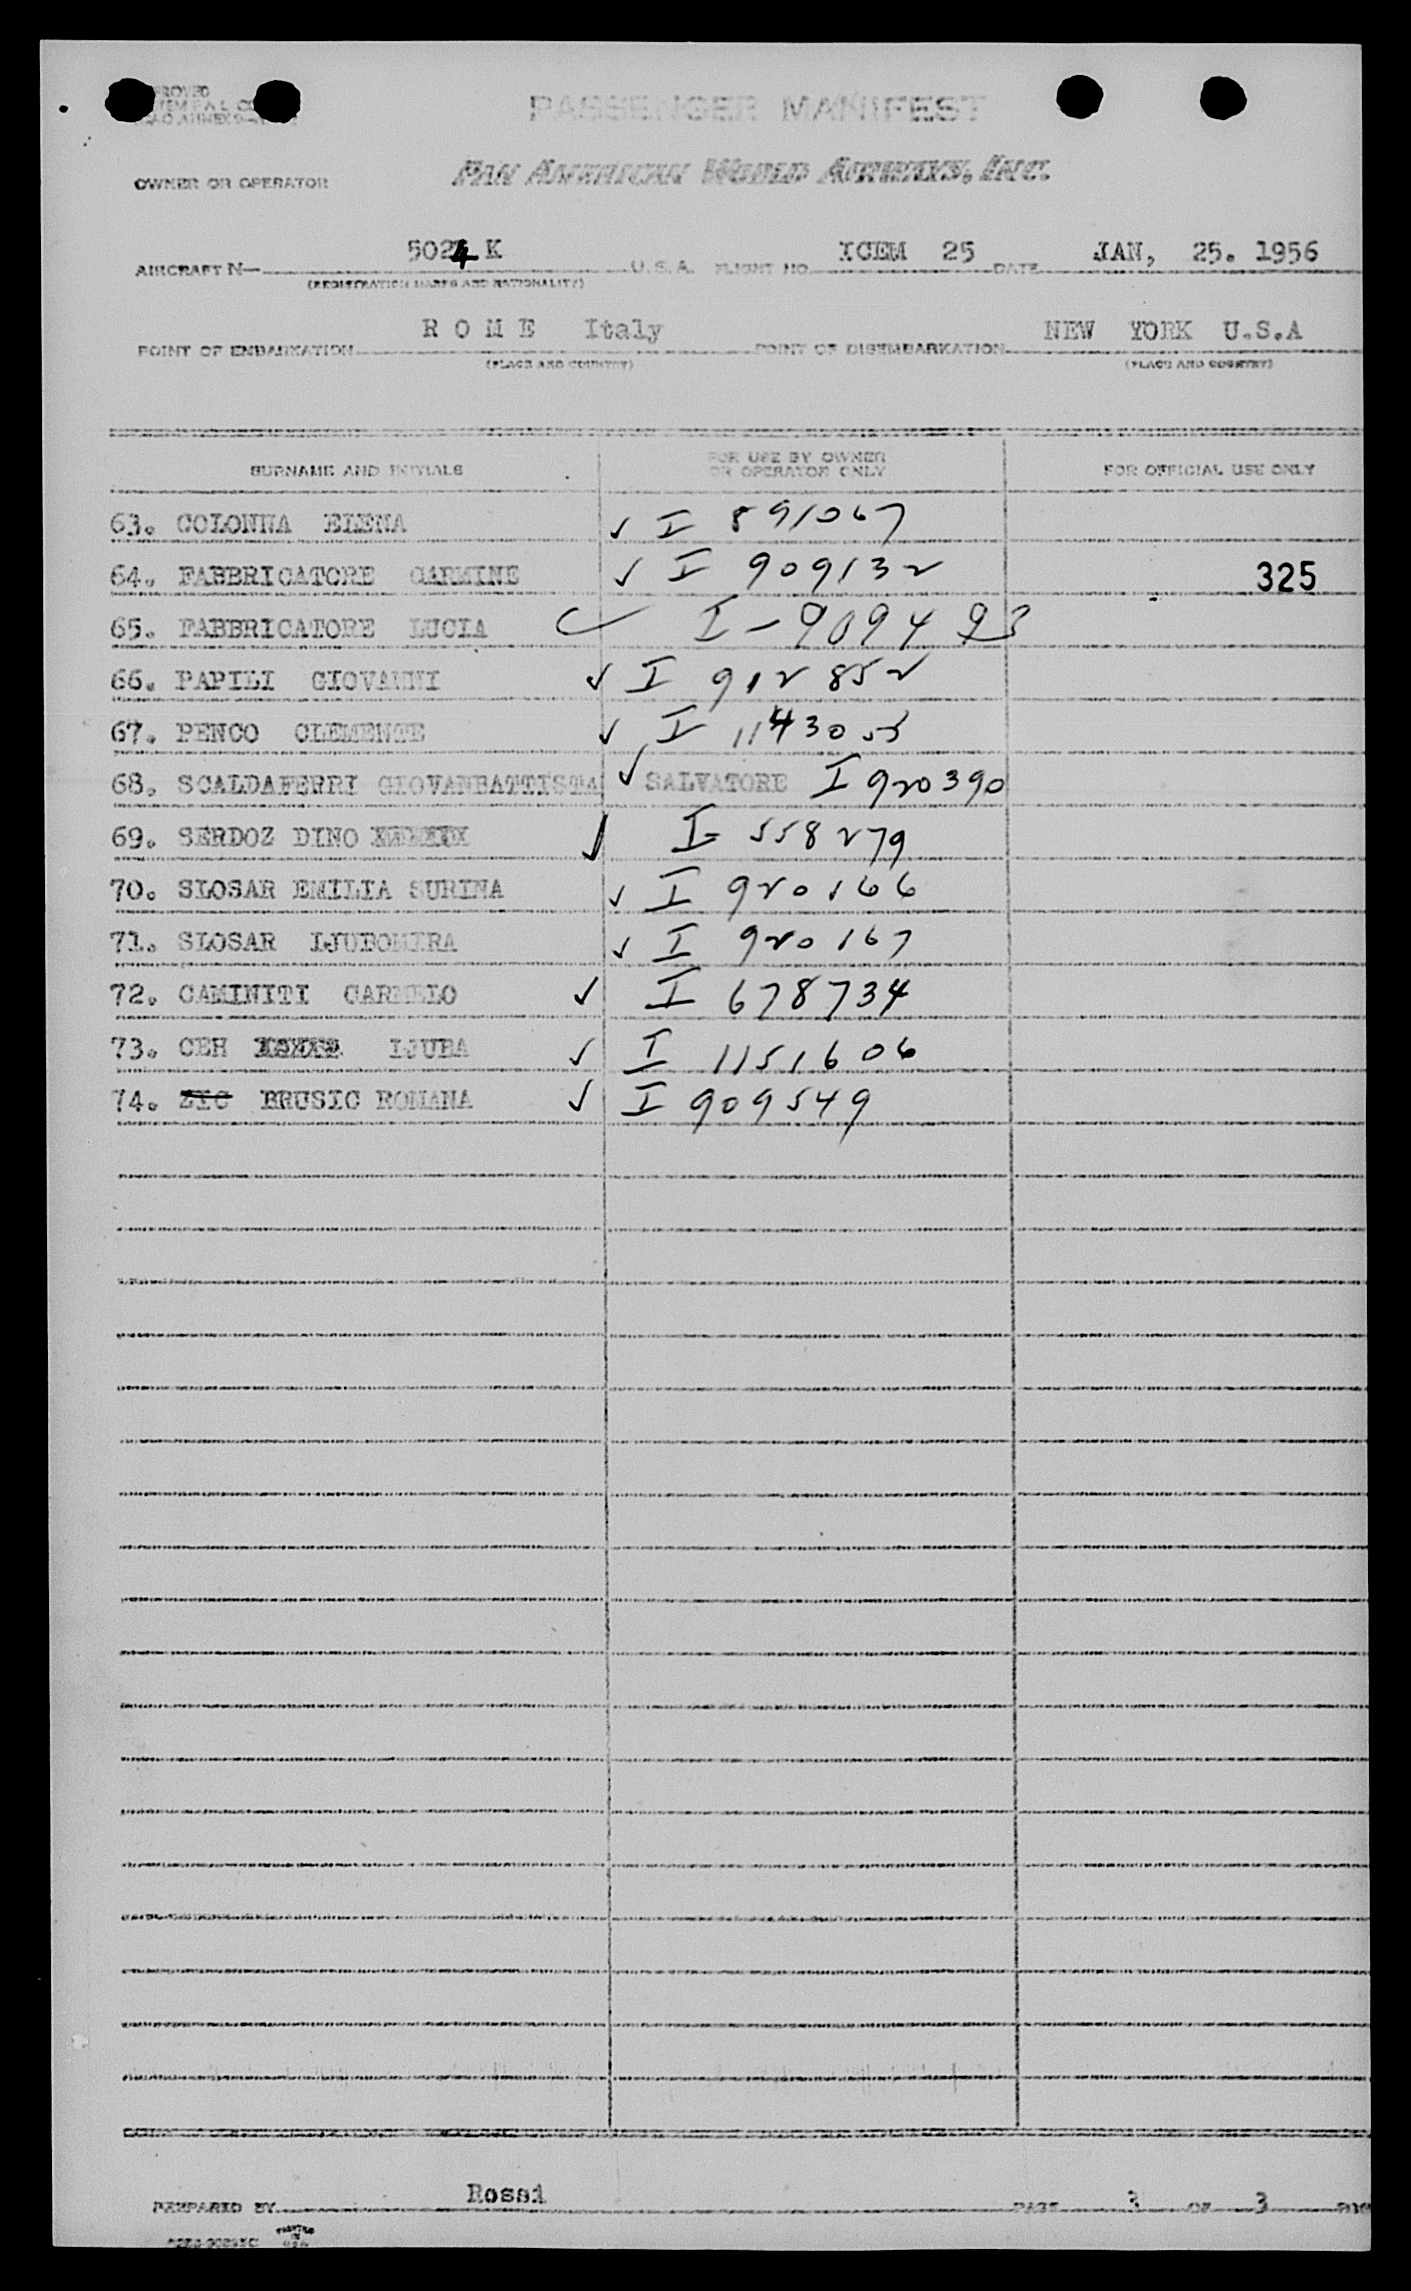 PASSENGER MANIFEST
OWNER OR OPERATOR
PAN AMERICAN WORLD AIRWAYS, INC.
AIRCRAFT N— 5024 K U.S.A. FLIGHT NO. ICEM 25 DATE JAN, 25. 1956
(REGISTRATION MARKS AND NATIONALITY)
POINT OF EMBARKATION R O M E Italy POINT OF DISEMBARKATION NEW YORK U.S.A
(PLACE AND COUNTRY) (PLACE AND COUNTRY)
SURNAME AND INITIALS FOR USE BY OWNER OR OPERATOR ONLY FOR OFFICIAL USE ONLY
63. COLONNA ELENA ✓ I 891067
64. FABBRICATORE CARMINE ✓ I 909132 325
65. FABBRICATORE LUCIA ✓ I-909493
66. PAPILI GIOVANNI ✓ I 912852
67. PENCO CLEMENTE ✓ I 1143053
68. SCALDAFERRI GIOVANBATTISTA ✓ SALVATORE I 920390
69. SERDOZ DINO ✓ I- 558279
70. SLOSAR EMILIA SURINA ✓ I 920166
71. SLOSAR LJUBOMIRA ✓ I 920167
72. CAMINITI CARMELO ✓ I 678734
73. CEH LJUBA ✓ I 1151606
74. ZIC BRUSIC ROMANA ✓ I 909549
PREPARED BY Rossi PAGE 3 OF 3
PRINTED IN USA